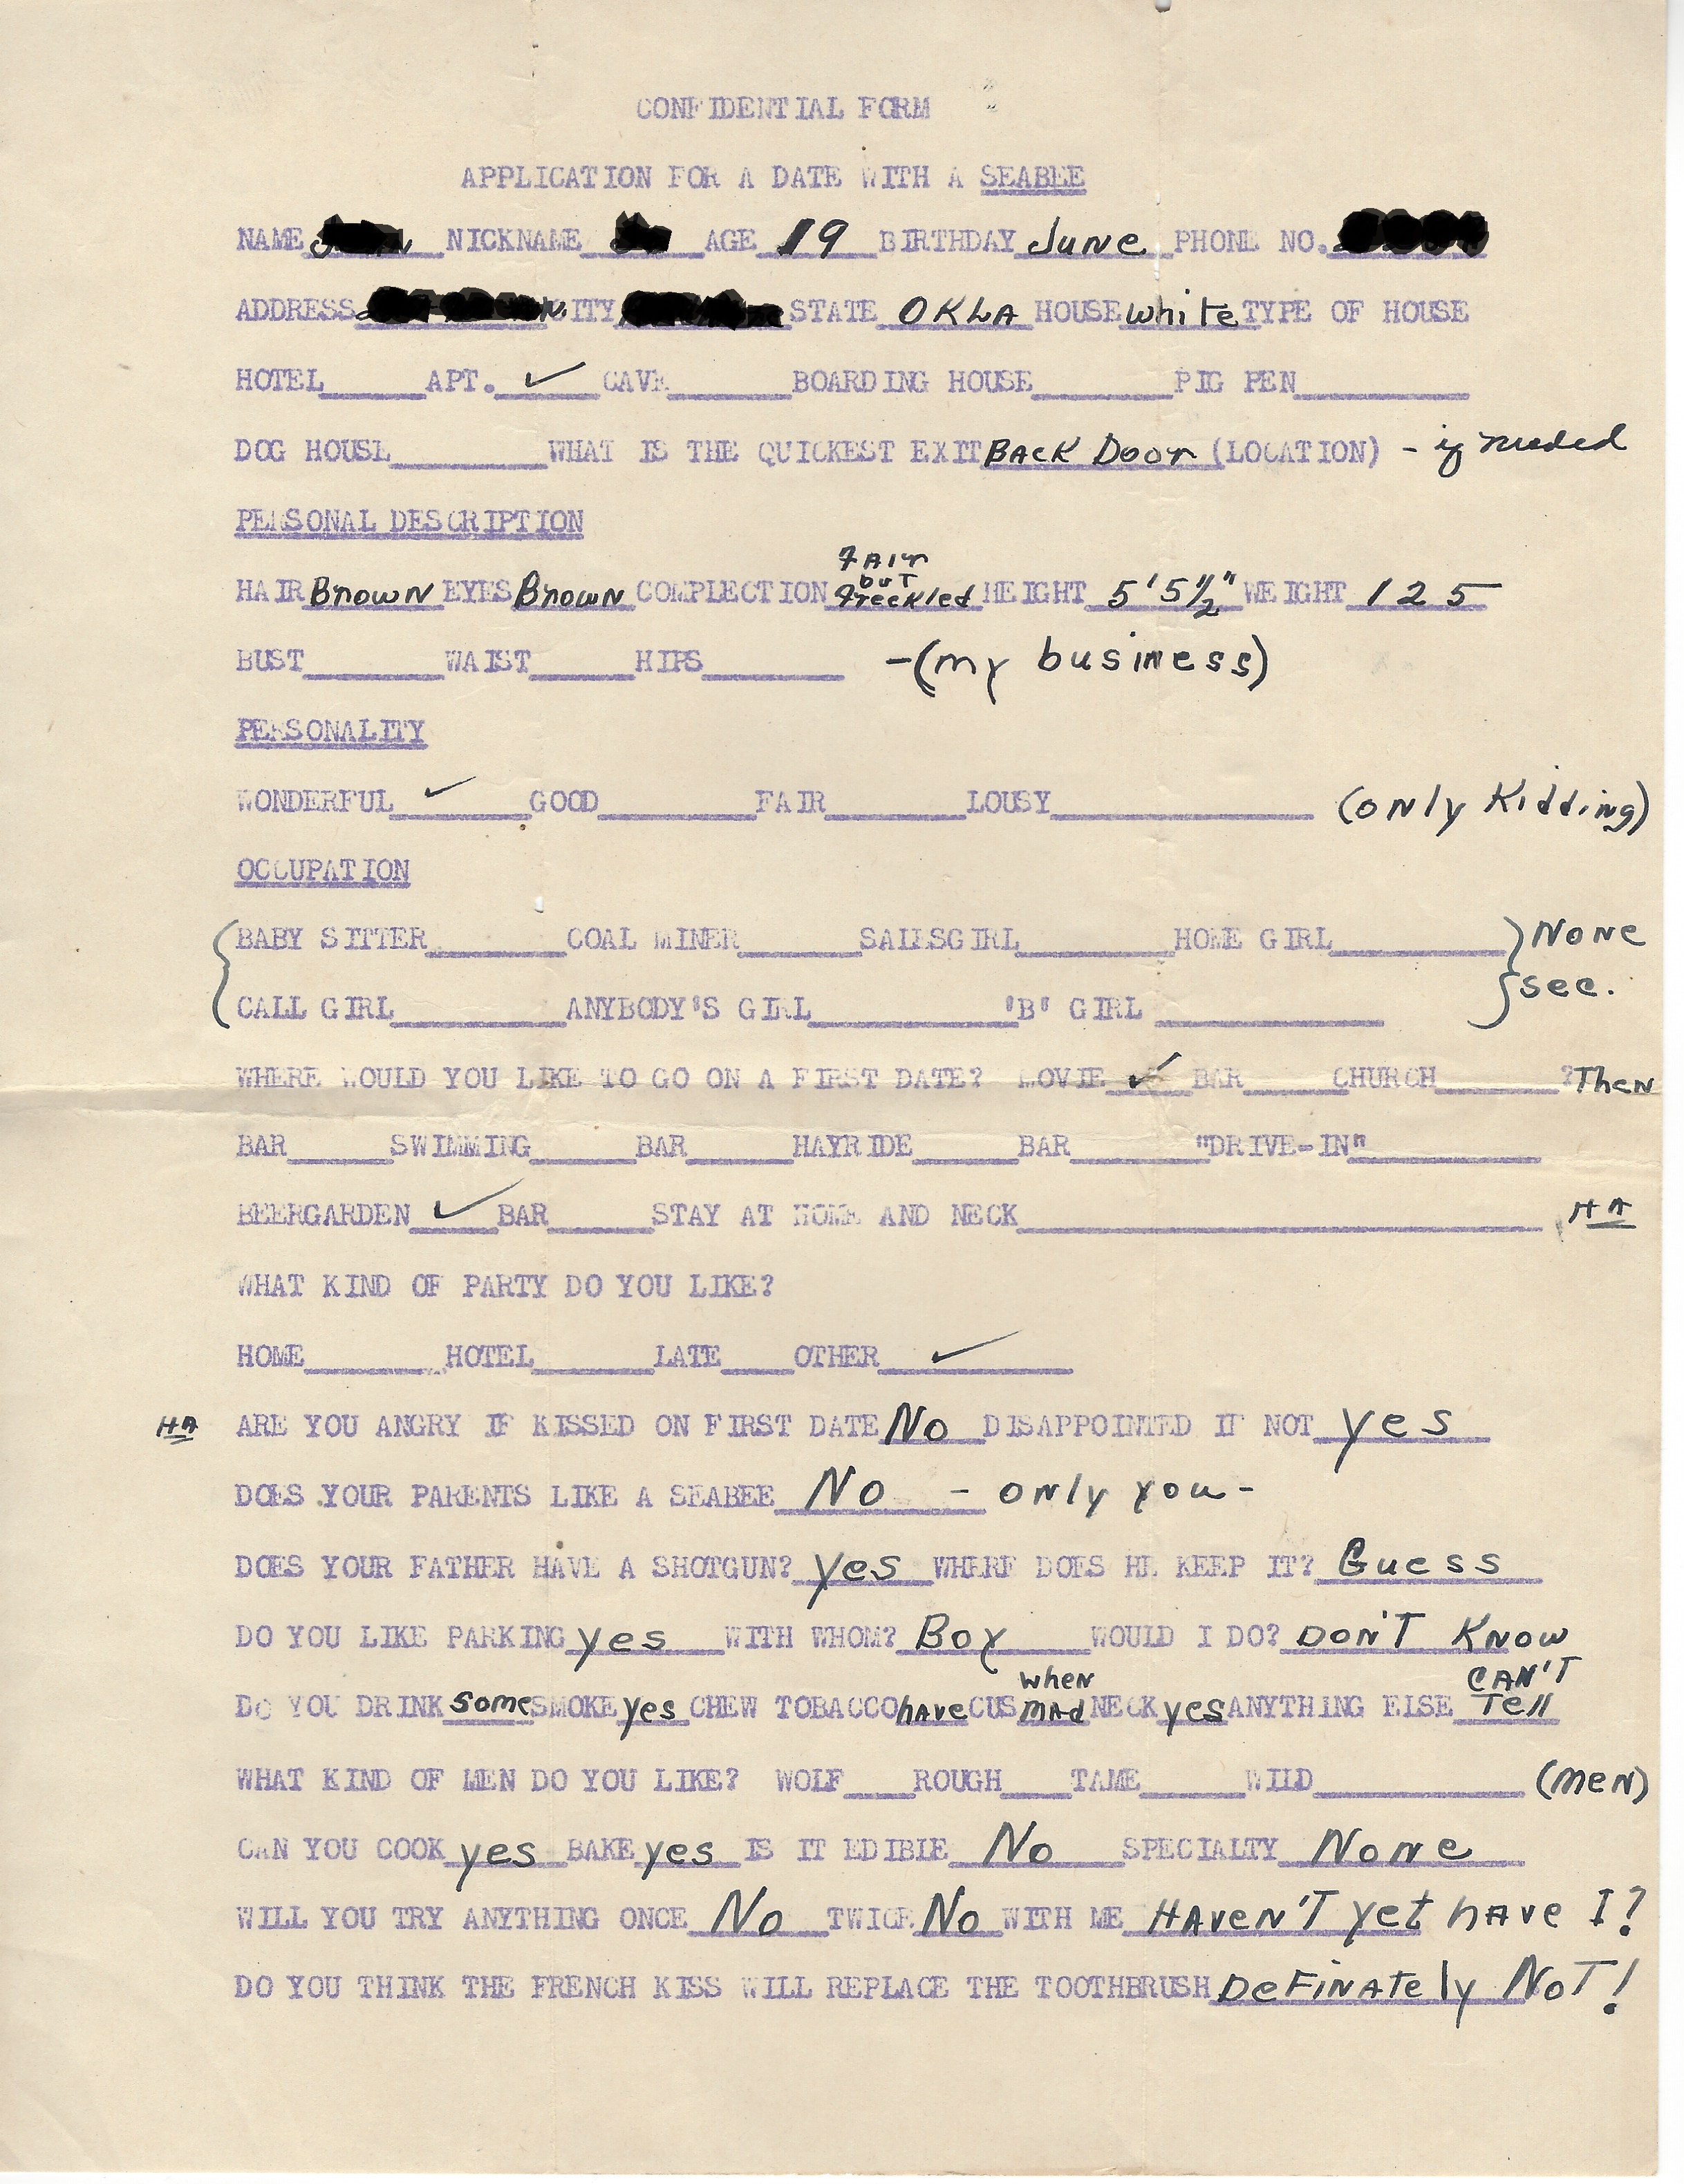 CONFIDENTIAL FORM
APPLICATION FOR A DATE WITH A SEABEE
NAME NICKNAME AGE 19 BIRTHDAY June PHONE NO.
ADDRESS CITY STATE OKLA HOUSE white TYPE OF HOUSE
HOTEL APT. ✓ CAVE BOARDING HOUSE PIG PEN
DOG HOUSE WHAT IS THE QUICKEST EXIT BACK DOOR (LOCATION) - if needed
PERSONAL DESCRIPTION
HAIR Brown EYES Brown COMPLECTION FAIR BUT Freckled HEIGHT 5'5½" WEIGHT 125
BUST WAIST HIPS -(my business)
PERSONALITY
WONDERFUL ✓ GOOD FAIR LOUSY (only Kidding)
OCCUPATION
BABY SITTER COAL MINER SALESGIRL HOME GIRL None
CALL GIRL ANYBODY'S GIRL "B" GIRL sec.
WHERE WOULD YOU LIKE TO GO ON A FIRST DATE? MOVIE ✓ BAR CHURCH ? Then
BAR SWIMMING BAR HAYRIDE BAR "DRIVE-IN"
BEERGARDEN ✓ BAR STAY AT HOME AND NECK HA
WHAT KIND OF PARTY DO YOU LIKE?
HOME HOTEL LATE OTHER ✓
HA ARE YOU ANGRY IF KISSED ON FIRST DATE No DISAPPOINTED IF NOT yes
DOES YOUR PARENTS LIKE A SEABEE No - only you -
DOES YOUR FATHER HAVE A SHOTGUN? yes WHERE DOES HE KEEP IT? Guess
DO YOU LIKE PARKING yes WITH WHOM? Boy WOULD I DO? DON'T KNOW
DO YOU DRINK some SMOKE yes CHEW TOBACCO have CUS when mad NECK yes ANYTHING ELSE CAN'T Tell
WHAT KIND OF MEN DO YOU LIKE? WOLF ROUGH TAME WILD (men)
CAN YOU COOK yes BAKE yes IS IT EDIBLE No SPECIALTY None
WILL YOU TRY ANYTHING ONCE No TWICE No WITH ME HAVEN'T yet have I?
DO YOU THINK THE FRENCH KISS WILL REPLACE THE TOOTHBRUSH Definately NOT!